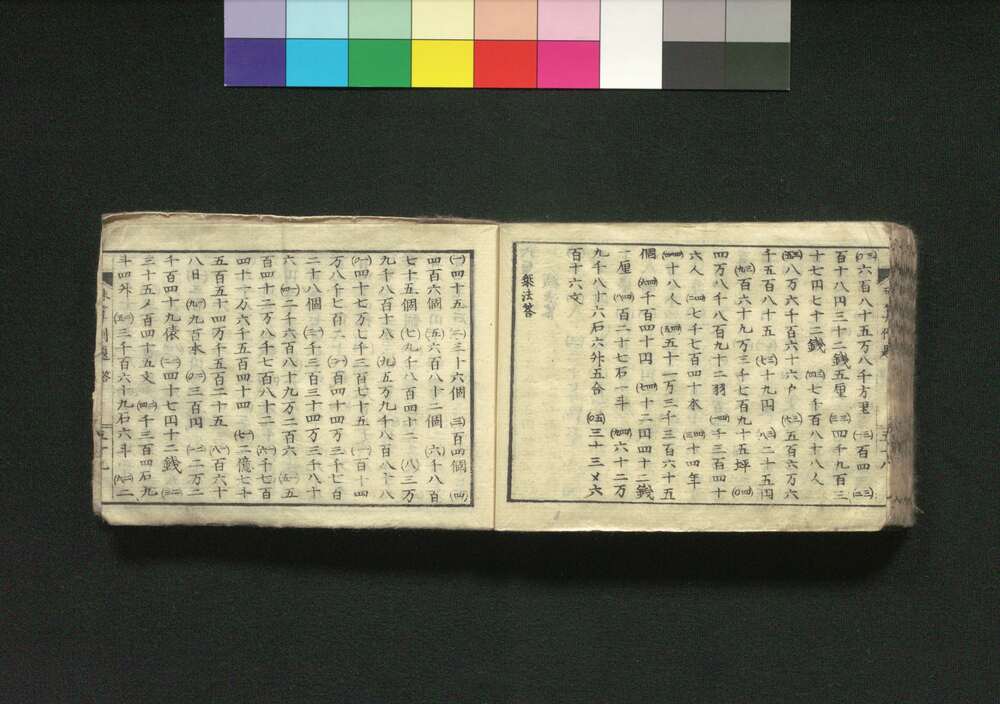 (三〇)六百八十五万八千方里 (三一)百四 (三二)
百十八円三十二錢五厘 (三三)四千九百三
十七円七十二錢 (三四)七千百八十八人
(三五)八万六千百六十六戸 (三六)五百六万六
千五百八十五 (三七)七十九円 (三八)二十五円
(三九)百六十九万三千七百九十五坪 (四〇)
四万八千八百九十二羽 (四一)千三百四十
六人 (四二)七千七百四十本 (四三)三十四年
(四四)十八人 (四五)五十一万三千三百六十五
個 (四六)千百四十円 (四七)十二円四十二錢
一厘 (四八)百二十七石一斗 (四九)六十二万
九千八十六石六升五合 (五〇)三十三〆六
百十六文
乗法答
(一)四十五 (二)三十六個 (三)百四個 (四)
四百六個 (五)六百八十二個 (六)千八百
七十五個 (七)九千八百四十二 (八)三万
九千八百十八 (九)五万九千八百八十八
(一〇)四十七万七千二百七十五 (一一)百十四
万八千七百二 (一二)百四十四万三千七百
二十八個 (一三)千三百三十四万三千八十
六 (一四)二千六百八十九万二百六 (一五)五
百四十二万八千七百八十二 (一六)千七百
四十一万六千五百四十四 (一七)二億七千
五百五十四万五千百二十五 (一八)百六十
八日 (一九)九百本 (二〇)三百円 (二一)二万二
千百四十九俵 (二二)四十七円十二錢 (二三)
三十五〆百四十五文 (二四)千三百四石九
斗四升 (二五)三千百六十九石六斗 (二六)二